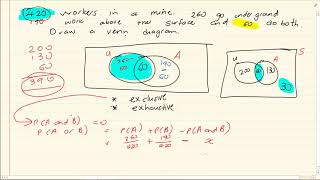 420 workers in a mine. 260 go underground
190 work above the surface and 60 do both
Draw a venn diagram.
200
130
60
390
U A
260-60 60 190-60
S
U A
200 60 130
30
* exclusive
* exhaustive
P(A and B) = 0
P(A or B) = P(A) + P(B) - P(A and B)
= 260/420 + 190/420 - x